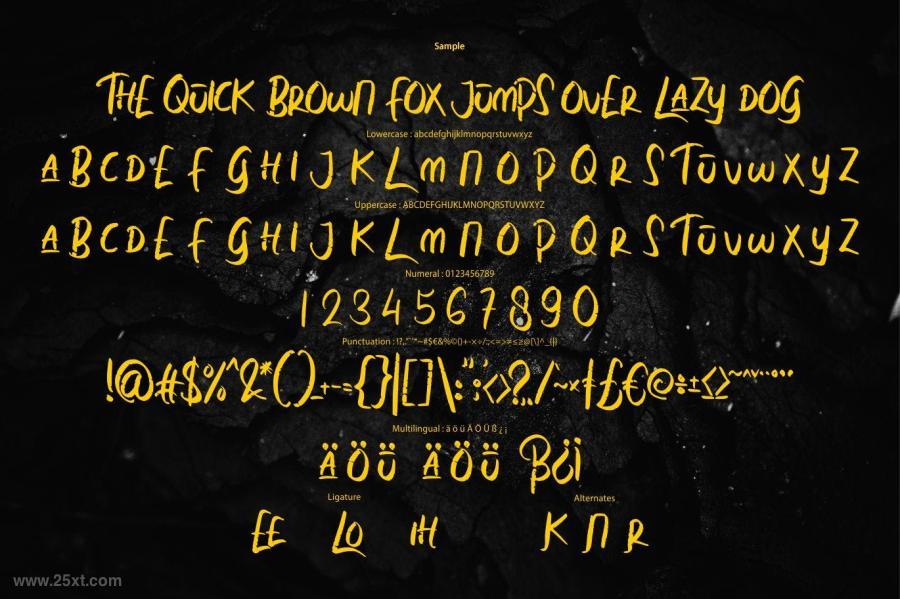 Sample
THE QUICK BROWN FOX JUMPS OVER LAZY DOG
Lowercase : abcdefghijklmnopqrstuvwxyz
A B C D E F G H I J K L M N O P Q R S T U V W X Y Z
Uppercase : ABCDEFGHIJKLMNOPQRSTUVWXYZ
A B C D E F G H I J K L M N O P Q R S T U V W X Y Z
Numeral : 0123456789
1 2 3 4 5 6 7 8 9 0
Punctuation :
!@#$%^&*()_+-={}|[]\:";'<>?,./~×‡£€©÷±≤≥
Multilingual : ä ö ü Ä Ö Ü ß ¿ ¡
Ä Ö Ü Ä Ö Ü ß ¿ ¡
Ligature Alternates
EE LO IH K N R
www.25xt.com